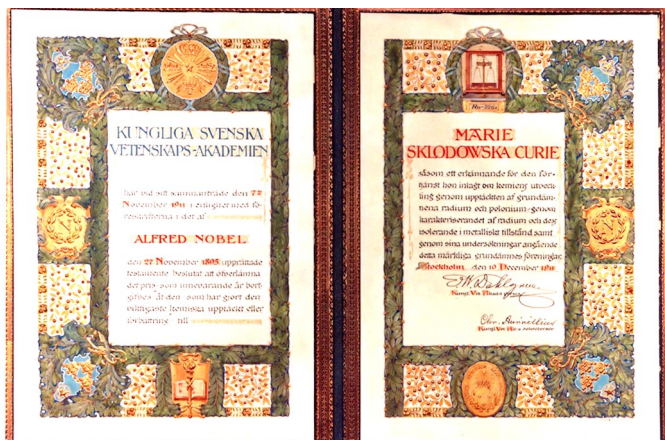 KUNGLIGA SVENSKA
VETENSKAPS-AKADEMIEN
har vid sitt sammanträde den 7
November 1911 i enlighet med fö-
reskrifterna i det af
ALFRED NOBEL
den 27 November 1895 upprättade
testamente beslutat att öfverlämna
det pris som innevarande år bort-
gifves "åt den som har gjort den
viktigaste kemiska upptäckt eller
förbättring" till
MARIE
SKLODOWSKA CURIE
såsom ett erkännande för den för-
tjänst hon inlagt om kemiens utveck-
ling genom upptäckten af grundäm-
nena radium och polonium, genom
karakteriserandet af radium och dess
isolerande i metalliskt tillstånd samt
genom sina undersökningar angående
detta märkliga grundämnes föreningar.
Stockholm den 10 December 1911
Kungl Vet Akad:s
Kungl Vet Akad:s sekreterare
N
N